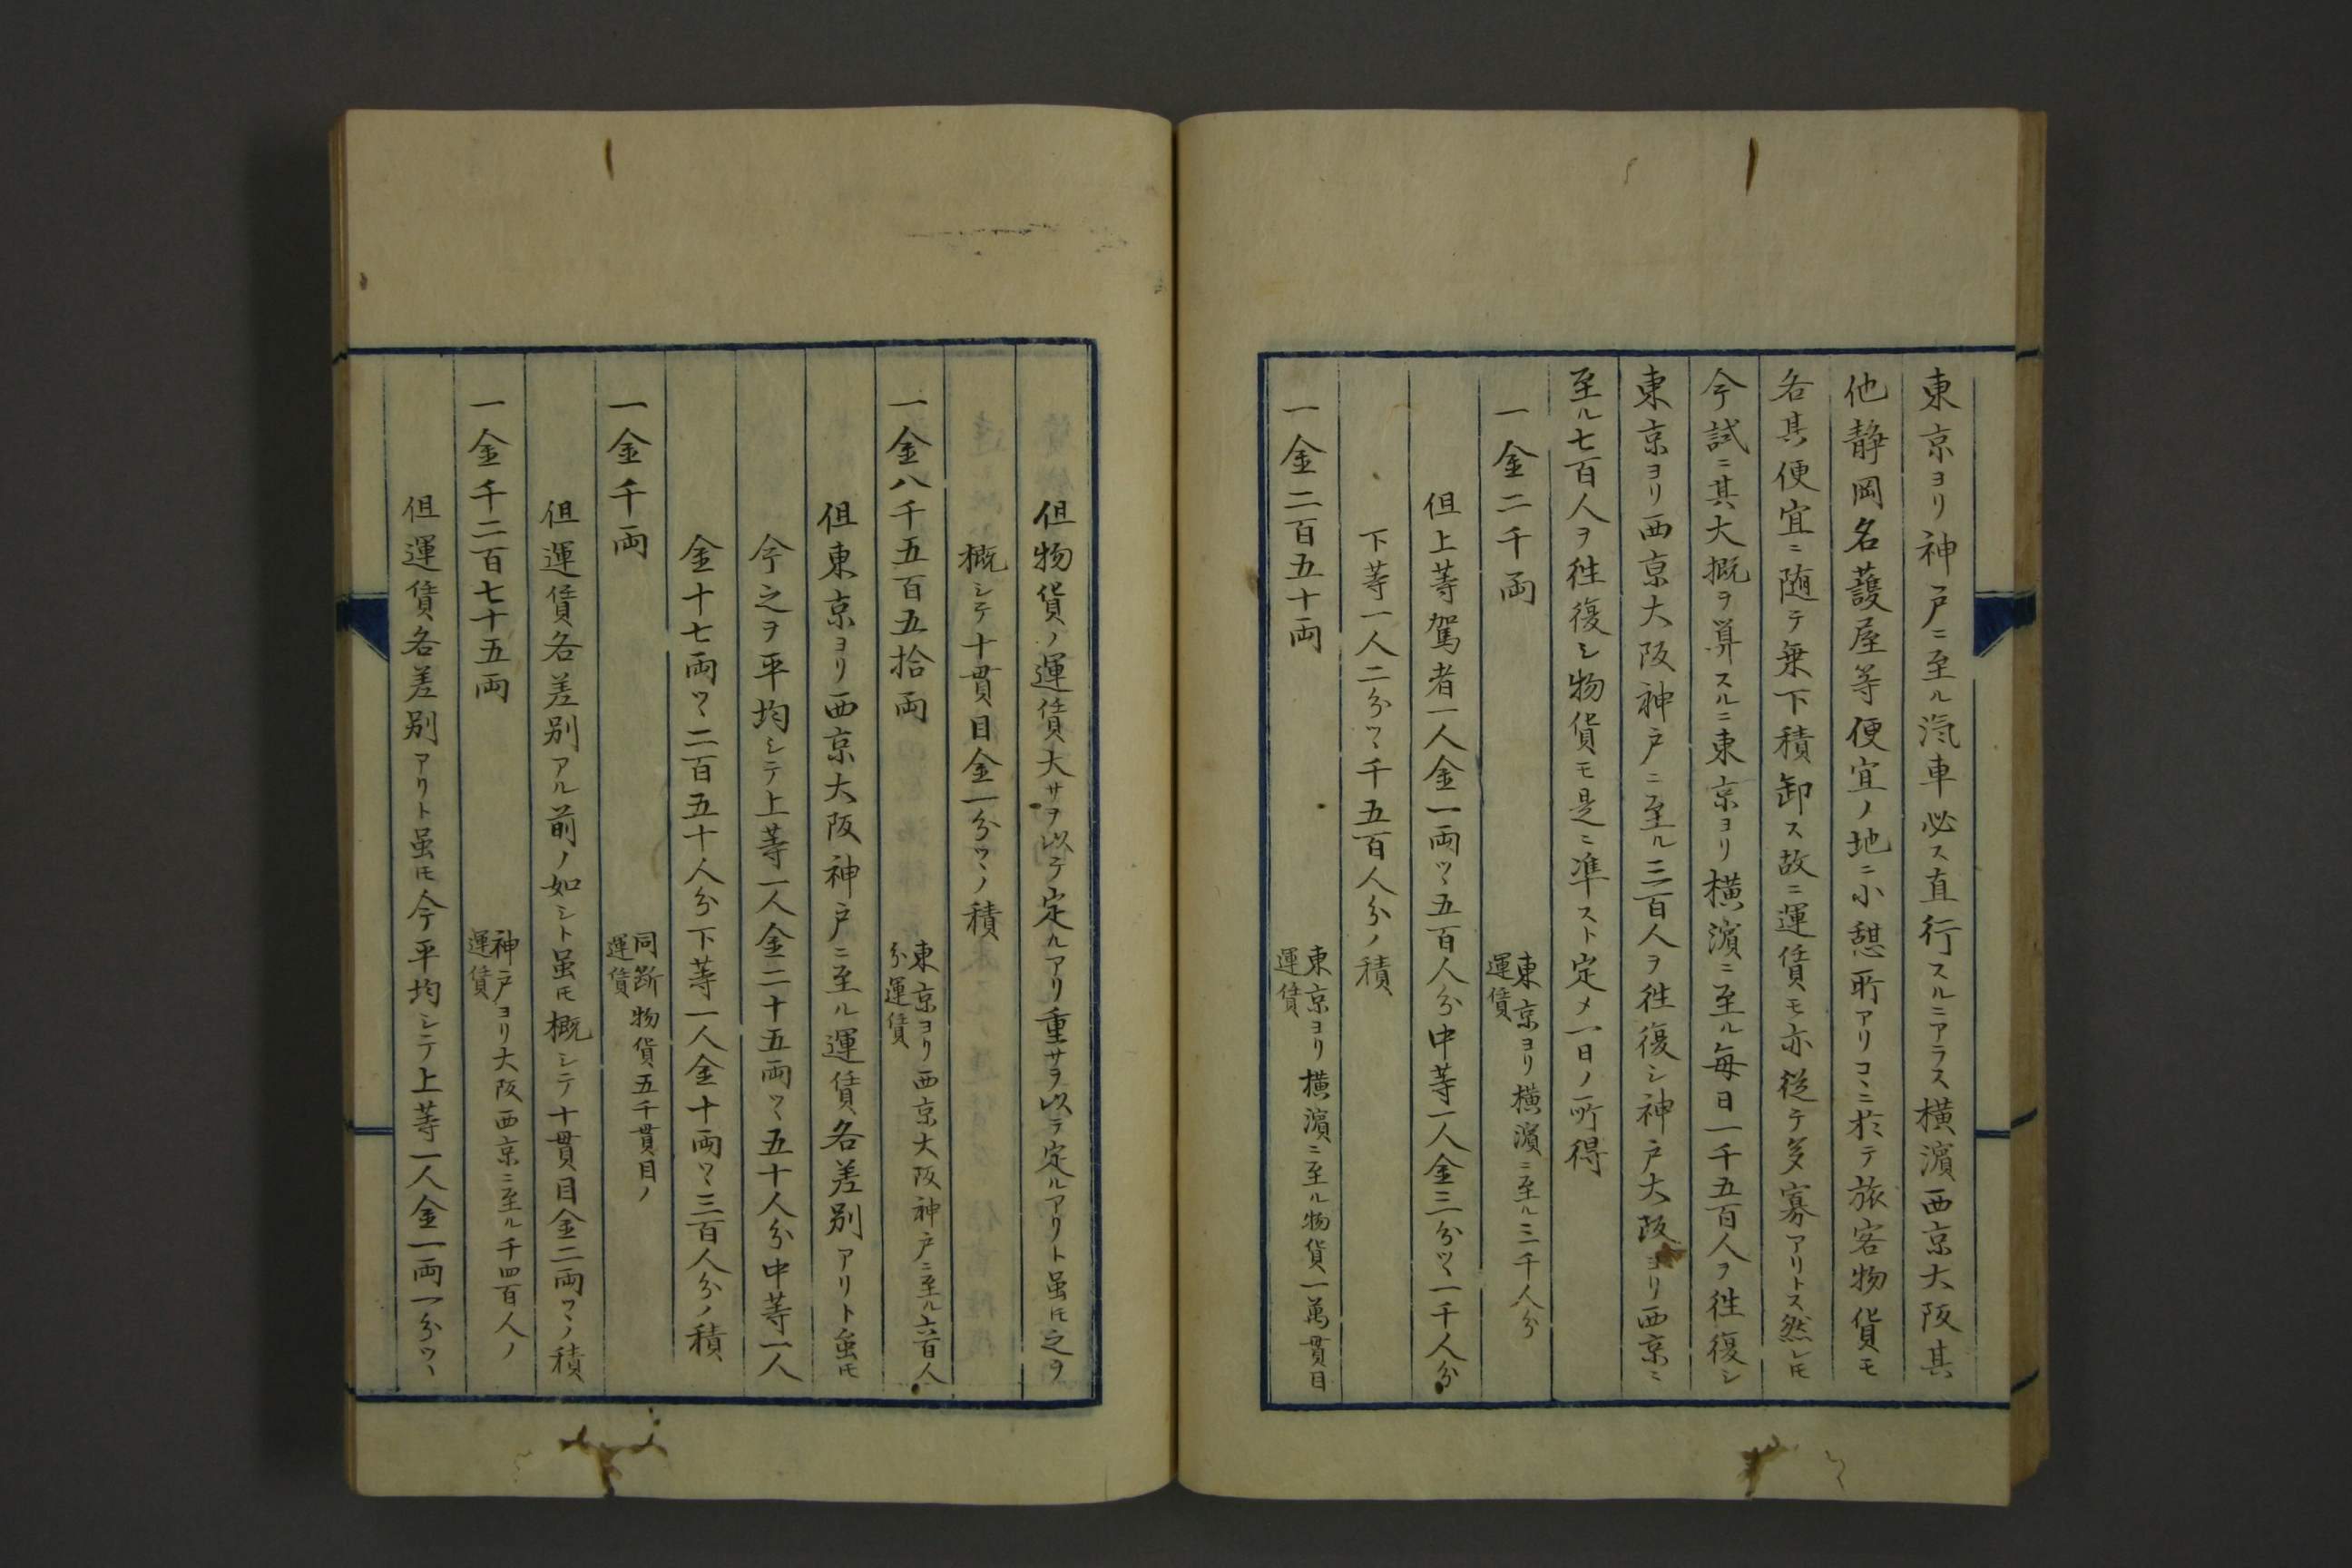 東京ヨリ神戸ニ至ル汽車必ス直行スルニアラス横濱西京大阪其
他静岡名護屋等便宜ノ地ニ小憩所アリコヽニ於テ旅客物貨モ
各其便宜ニ随テ乗下積卸ス故ニ運賃モ亦従テ多寡アリトス然レ𪜈
今試ニ其大概ヲ算スルニ東京ヨリ横濱ニ至ル毎日一千五百人ヲ徃復シ
東京ヨリ西京大阪神戸ニ至ル三百人ヲ徃復シ神戸大阪ヨリ西京ニ
至ル七百人ヲ徃復シ物貨モ是ニ準スト定メ一日ノ所得
一金二千両
東京ヨリ横濱ニ至ル三千人分
運賃
但上等駕者一人金一両ツヽ五百人分中等一人金三分ツヽ一千人分
下等一人二分ツヽ千五百人分ノ積
一金二百五十両
東京ヨリ横濱ニ至ル物貨一萬貫目
運賃
但物貨ノ運賃大サヲ以テ定ルアリ重サヲ以テ定ルアリト虽𪜈之ヲ
概シテ十貫目金一分ツヽノ積
一金八千五百五拾両
東京ヨリ西京大阪神戸ニ至ル六百人
分運賃
但東京ヨリ西京大阪神戸ニ至ル運賃各差別アリト虽𪜈
今之ヲ平均シテ上等一人金二十五両ツヽ五十人分中等一人
金十七両ツヽ二百五十人分下等一人金十両ツヽ三百人分ノ積
一金千両
同断物貨五千貫目ノ
運賃
但運賃各差別アル前ノ如シト虽𪜈概シテ十貫目金二両ツヽノ積
一金千二百七十五両
神戸ヨリ大阪西京ニ至ル千四百人ノ
運賃
但運賃各差別アリト虽𪜈今平均シテ上等一人金一両一分ツヽ